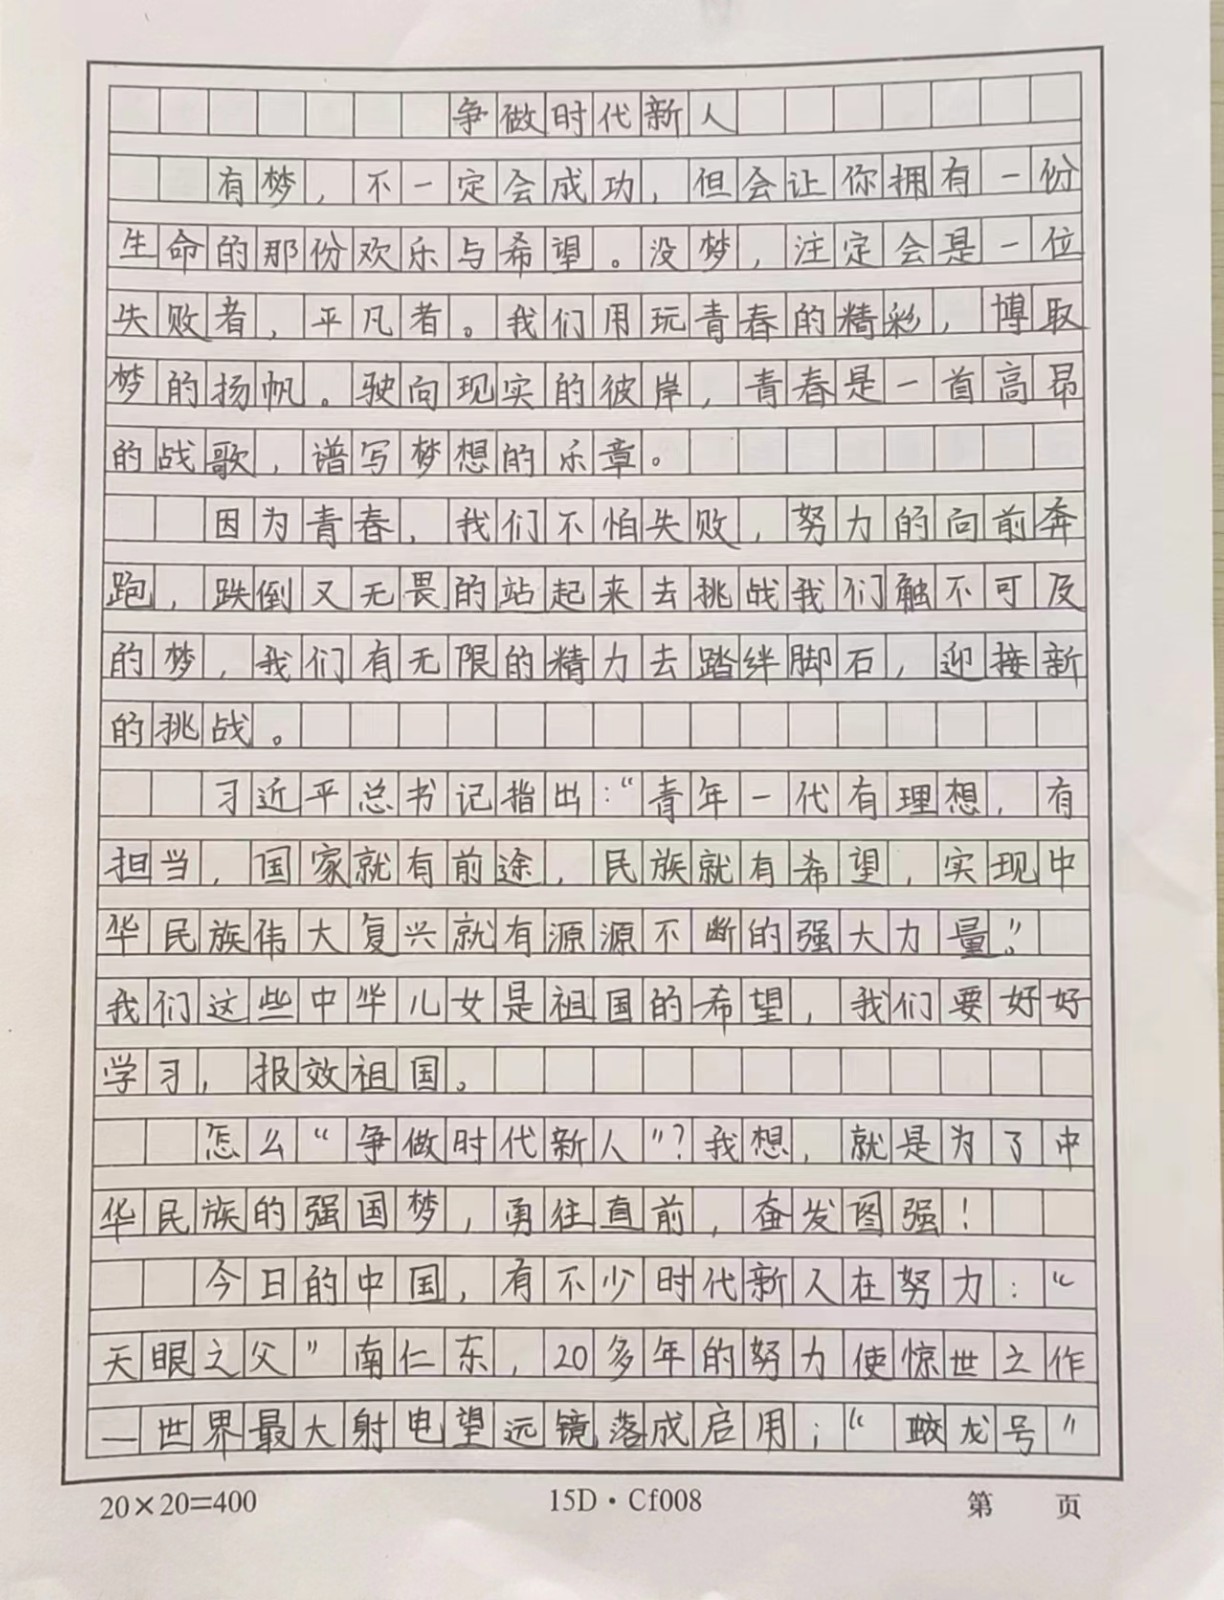 争做时代新人
有梦，不一定会成功，但会让你拥有一份
生命的那份欢乐与希望。没梦，注定会是一位
失败者，平凡者。我们用玩青春的精彩，博取
梦的扬帆。驶向现实的彼岸，青春是一首高昂
的战歌，谱写梦想的乐章。
因为青春，我们不怕失败，努力的向前奔
跑，跌倒又无畏的站起来去挑战我们触不可及
的梦，我们有无限的精力去踏绊脚石，迎接新
的挑战。
习近平总书记指出：“青年一代有理想，有
担当，国家就有前途，民族就有希望，实现中
华民族伟大复兴就有源源不断的强大力量。”
我们这些中华儿女是祖国的希望，我们要好好
学习，报效祖国。
怎么“争做时代新人”？我想，就是为了中
华民族的强国梦，勇往直前，奋发图强！
今日的中国，有不少时代新人在努力：“
天眼之父”南仁东，20多年的努力使惊世之作
—世界最大射电望远镜落成启用；“蛟龙号”
20×20=400 15D·Cf008 第 页